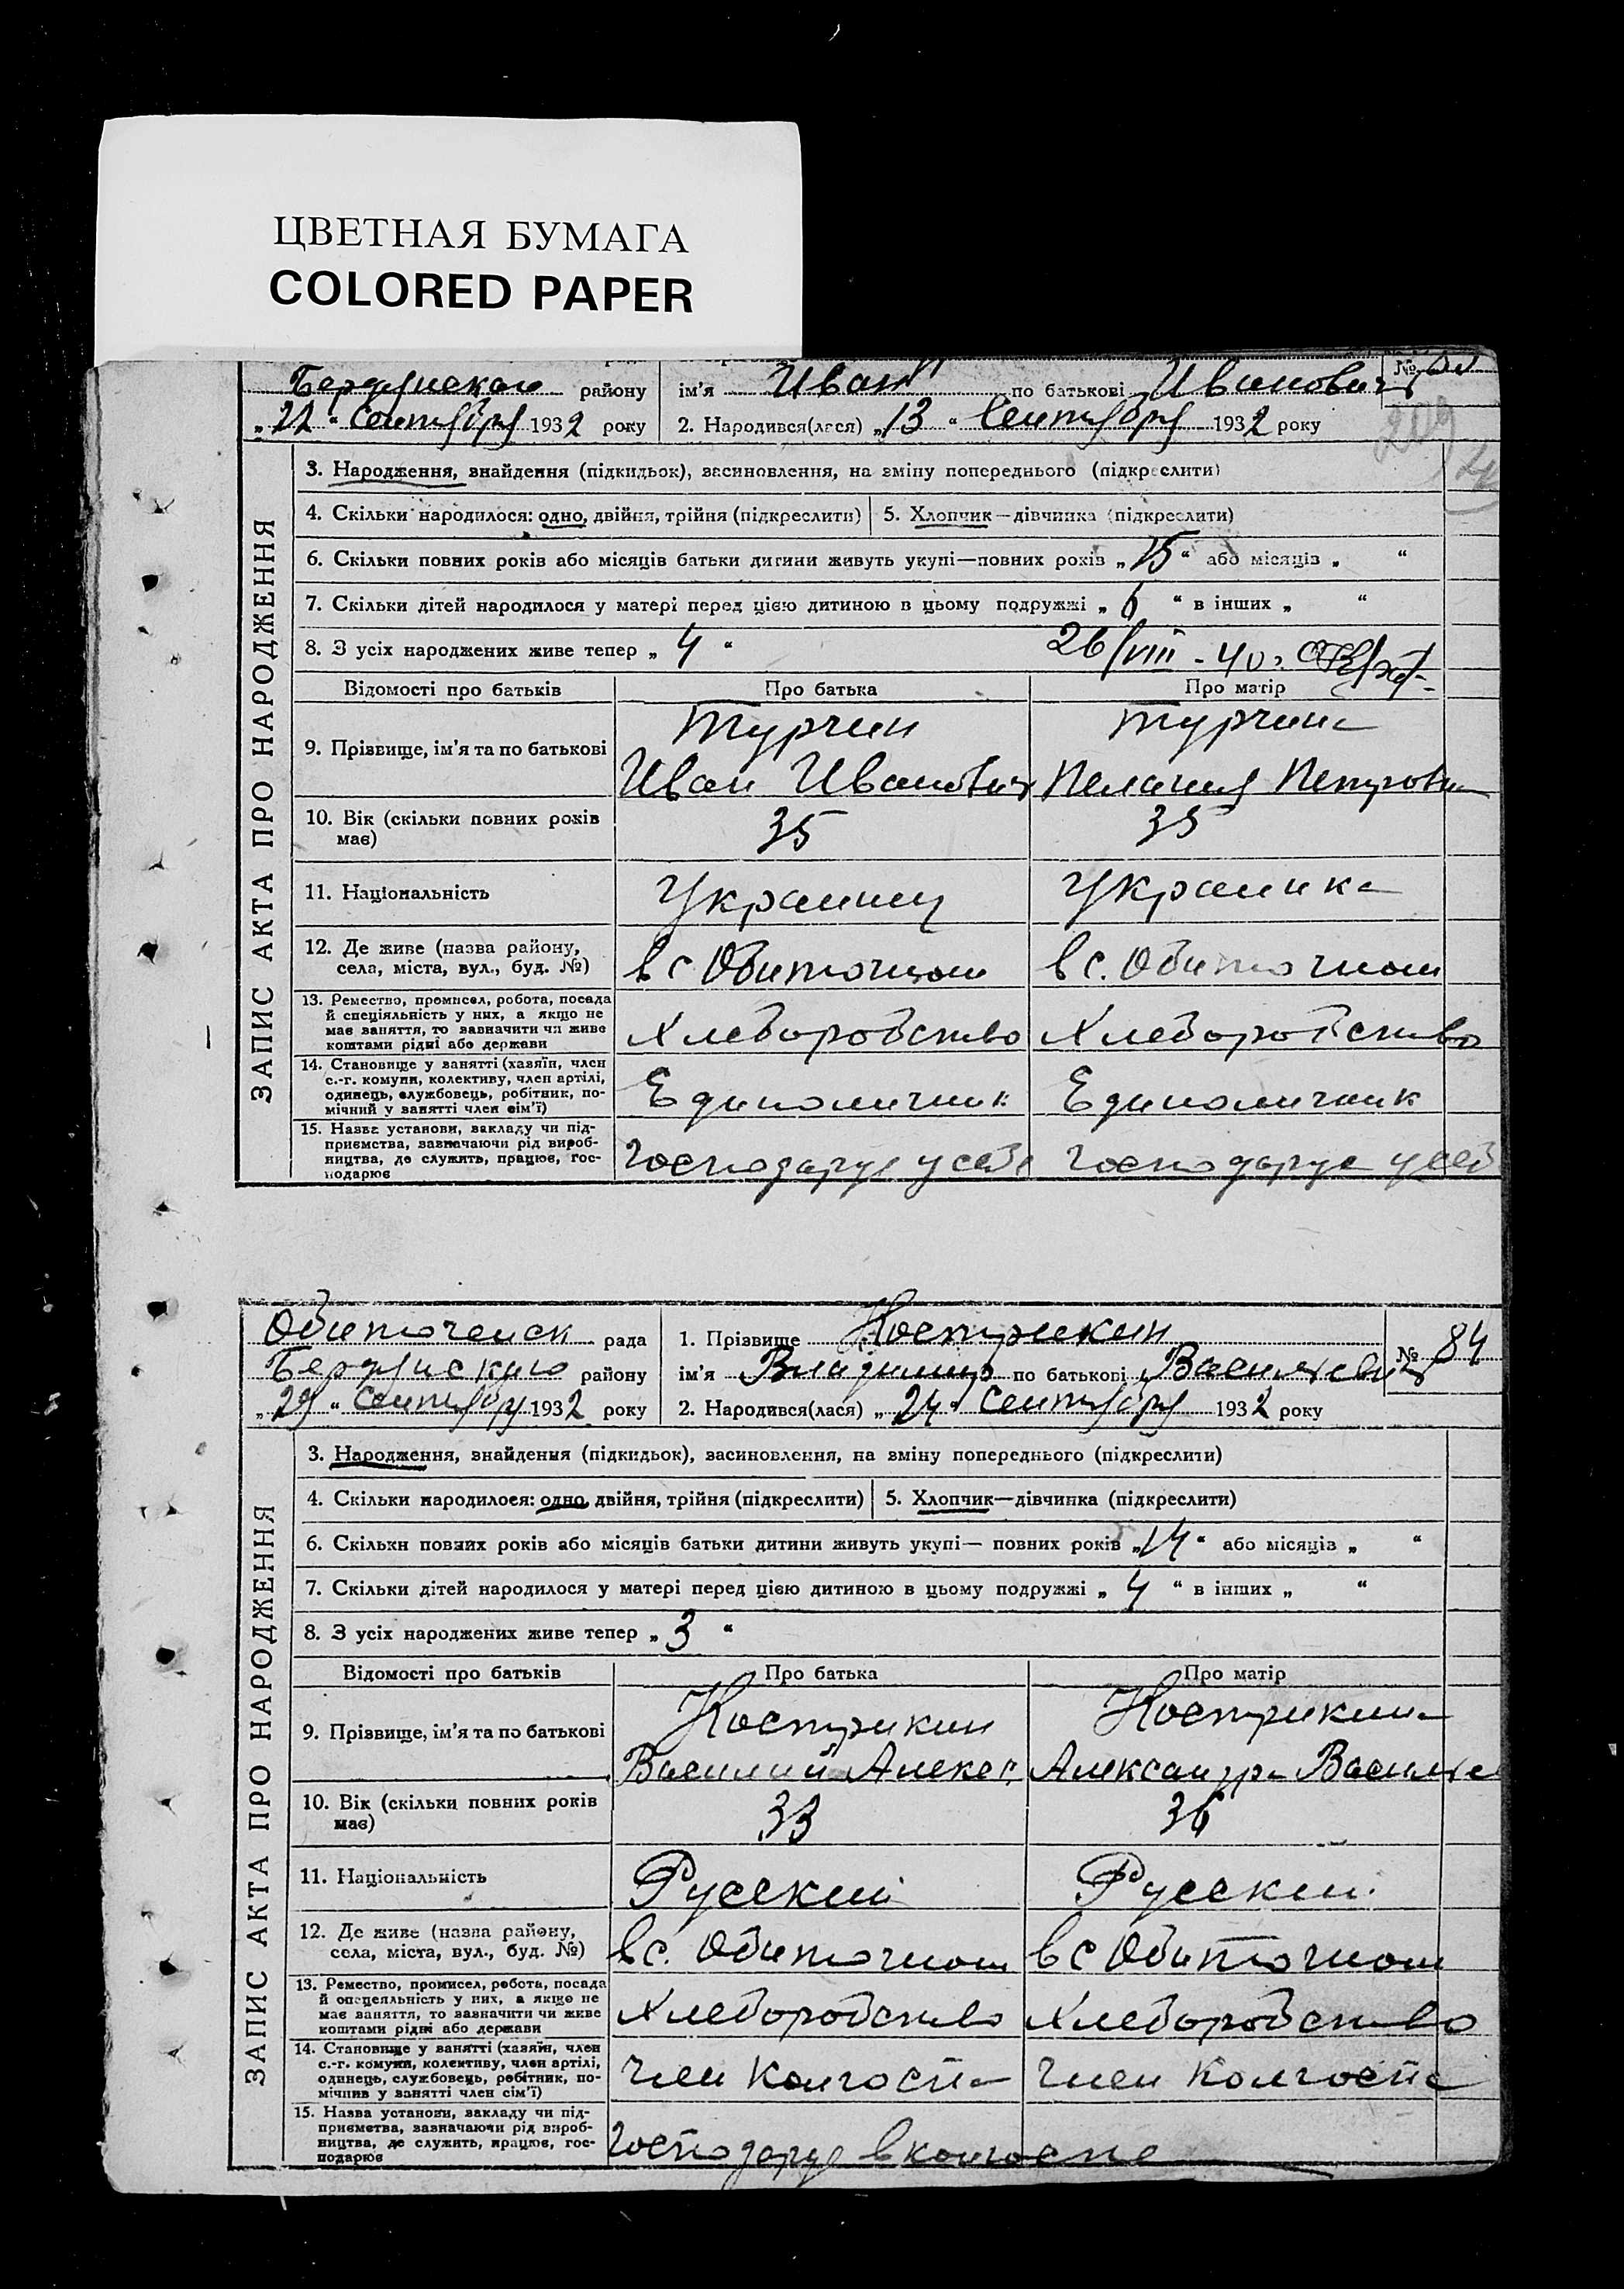 ЦВЕТНАЯ БУМАГА
COLORED PAPER
Бердянского району ім'я Иван по батькові Иванович №
„22“ Сентября 1932 року 2. Народився(лася) „13“ Сентября 1932 року
209
ЗАПИС АКТА ПРО НАРОДЖЕННЯ
3. Народження, знайдення (підкидьок), засиновлення, на зміну попереднього (підкреслити)
4. Скільки народилося: одно, двійня, трійня (підкреслити) 5. Хлопчик—дівчинка (підкреслити)
6. Скільки повних років або місяців батьки дитини живуть укупі—повних років „15“ або місяців „ “
7. Скільки дітей народилося у матері перед цією дитиною в цьому подружжі „6“ в інших „ “
8. З усіх народжених живе тепер „4“ 26/VIII - 40
Відомості про батьків Про батька Про матір
9. Прізвище, ім'я та по батькові Турчин Турчина
Иван Иванович Пелагия Петровна
10. Вік (скільки повних років має) 35 35
11. Національність Украинец Украинка
12. Де живе (назва району, села, міста, вул., буд. №) в с Обиточном в с. Обиточном
13. Ремество, промисел, робота, посада й спеціяльність у них, а якщо не має заняття, то зазначити чи живе коштами рідні або держави Хлеборобство Хлеборобство
14. Становище у занятті (хазяїн, член с.-г. комуни, колективу, член артілі, одинець, службовець, робітник, помічний у занятті член сім'ї) Единоличник Единоличник
15. Назва установи, закладу чи підприємства, зазначаючи рід виробництва, де служить, працює, господарює Господарує у себе Господарує у себе
Обиточенск рада 1. Прізвище Кострикин № 84
Бердянского району ім'я Владимир по батькові Васильевич
„29“ Сентября 1932 року 2. Народився(лася) „24“ Сентября 1932 року
ЗАПИС АКТА ПРО НАРОДЖЕННЯ
3. Народження, знайдення (підкидьок), засиновлення, на зміну попереднього (підкреслити)
4. Скільки народилося: одно, двійня, трійня (підкреслити) 5. Хлопчик—дівчинка (підкреслити)
6. Скільки повних років або місяців батьки дитини живуть укупі— повних років „14“ або місяців „ “
7. Скільки дітей народилося у матері перед цією дитиною в цьому подружжі „4“ в інших „ “
8. З усіх народжених живе тепер „3“
Відомості про батьків Про батька Про матір
9. Прізвище, ім'я та по батькові Кострикин Кострикина
Василий Алекс. Александра Василье
10. Вік (скільки повних років має) 33 36
11. Національність Русский Русский
12. Де живе (назва району, села, міста, вул., буд. №) в с. Обиточном в с Обиточном
13. Ремество, промисел, робота, посада й спецеяльність у них, а якщо не має заняття, то зазначити чи живе коштами рідні або держави Хлеборобство Хлеборобство
14. Становище у занятті (хазяїн, член с.-г. комуни, колективу, член артілі, одинець, службовець, робітник, помічник у занятті член сім'ї) член колгоспа член колгоспа
15. Назва установи, закладу чи підприємства, зазначаючи рід виробництва, де служить, працює, господарює Господарує в колгоспе